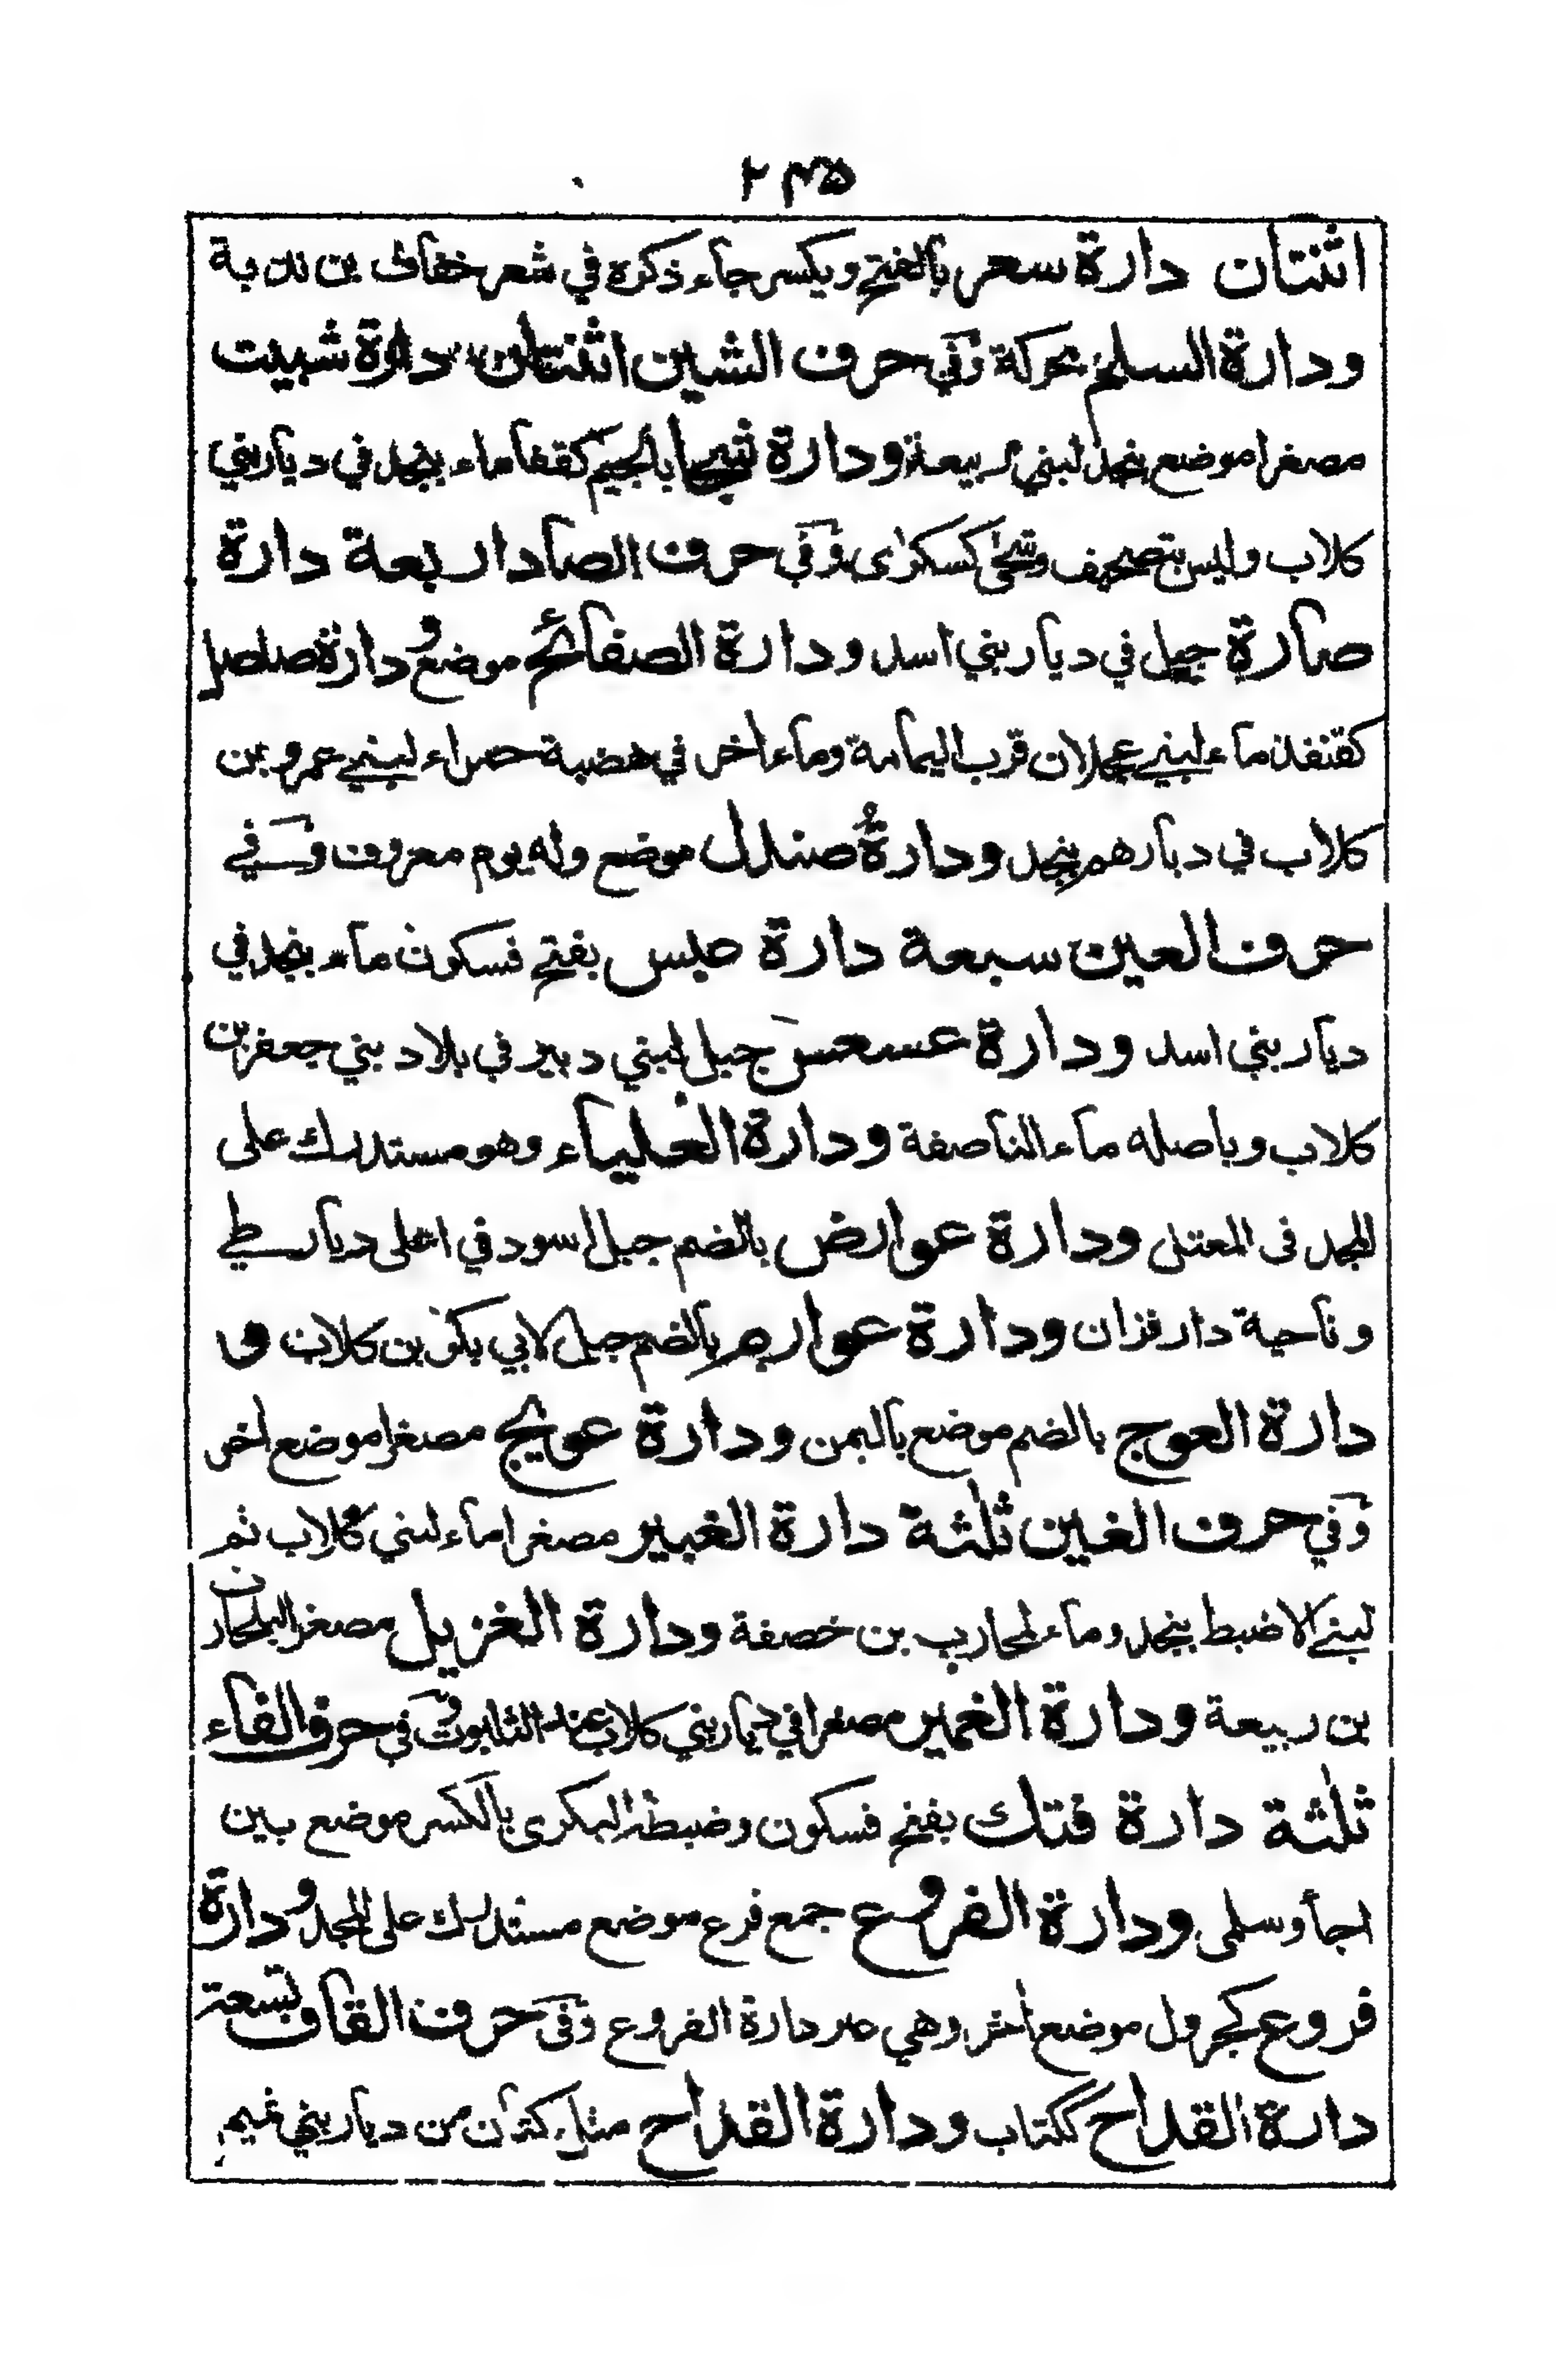 ٢٣٥
اثنتان دارة سعر بالفتح ويكسر جاء ذكره في شعر خفاف بن ندبة
ودارة السلم محركة وفي حرف الشين اثنتان دارة شبيت
مصغرا موضع بنجد لبني ربيعة ودارة شجا بالجيم كقفا ماء بنجد في ديار بني
كلاب وليس بتصحيف وشحى كسكرى وفي حرف الصاد اربعة دارة
صارة جبل في ديار بني اسد ودارة الصفائح موضع ودارة صلصل
كقنفذ ماء لبني عجلان قرب اليمامة وماء اخر في هضبة حمراء لبني عمرو بن
كلاب في ديارهم بنجد ودارة صندل موضع وله يوم معروف وفي
حرف العين سبعة دارة عبس بفتح فسكون ماء بنجد في
ديار بني اسد ودارة عسعس جبل لبني دبير في بلاد بني جعفر بن
كلاب وباصله ماء الناصفة ودارة العلياء وهو مستدرك على
المجد في المعتل ودارة عوارض بالضم جبل اسود في اعلى ديار طي
وناحية دار فزان ودارة عوارم بالضم جبل لابي بكر بن كلاب و
دارة العوج بالضم موضع باليمن ودارة عويج مصغرا موضع اخر
وفي حرف الغين ثلثة دارة الغبير مصغرا ماء لبني كلاب ثم
لبني الاضبط بنجد وماء لمحارب بن خصفة ودارة الغزيل مصغر البلحارن
بن ربيعة ودارة الغمير مصغرا في ديار بني كلاب عند الثلبوت وفي حرف الفاء
ثلثة دارة فتك بفتح فسكون وضبطه البكري بالكسر موضع بين
اجأ وسلمى ودارة الفروع جمع فرع موضع مستدرك على المجد ودارة
فروع كجرول موضع اخر وهي غير دارة الفروع وفي حرف القاف تسعة
دارة القداح ككتاب ودارة القداح مثل كتان من ديار بني تميم